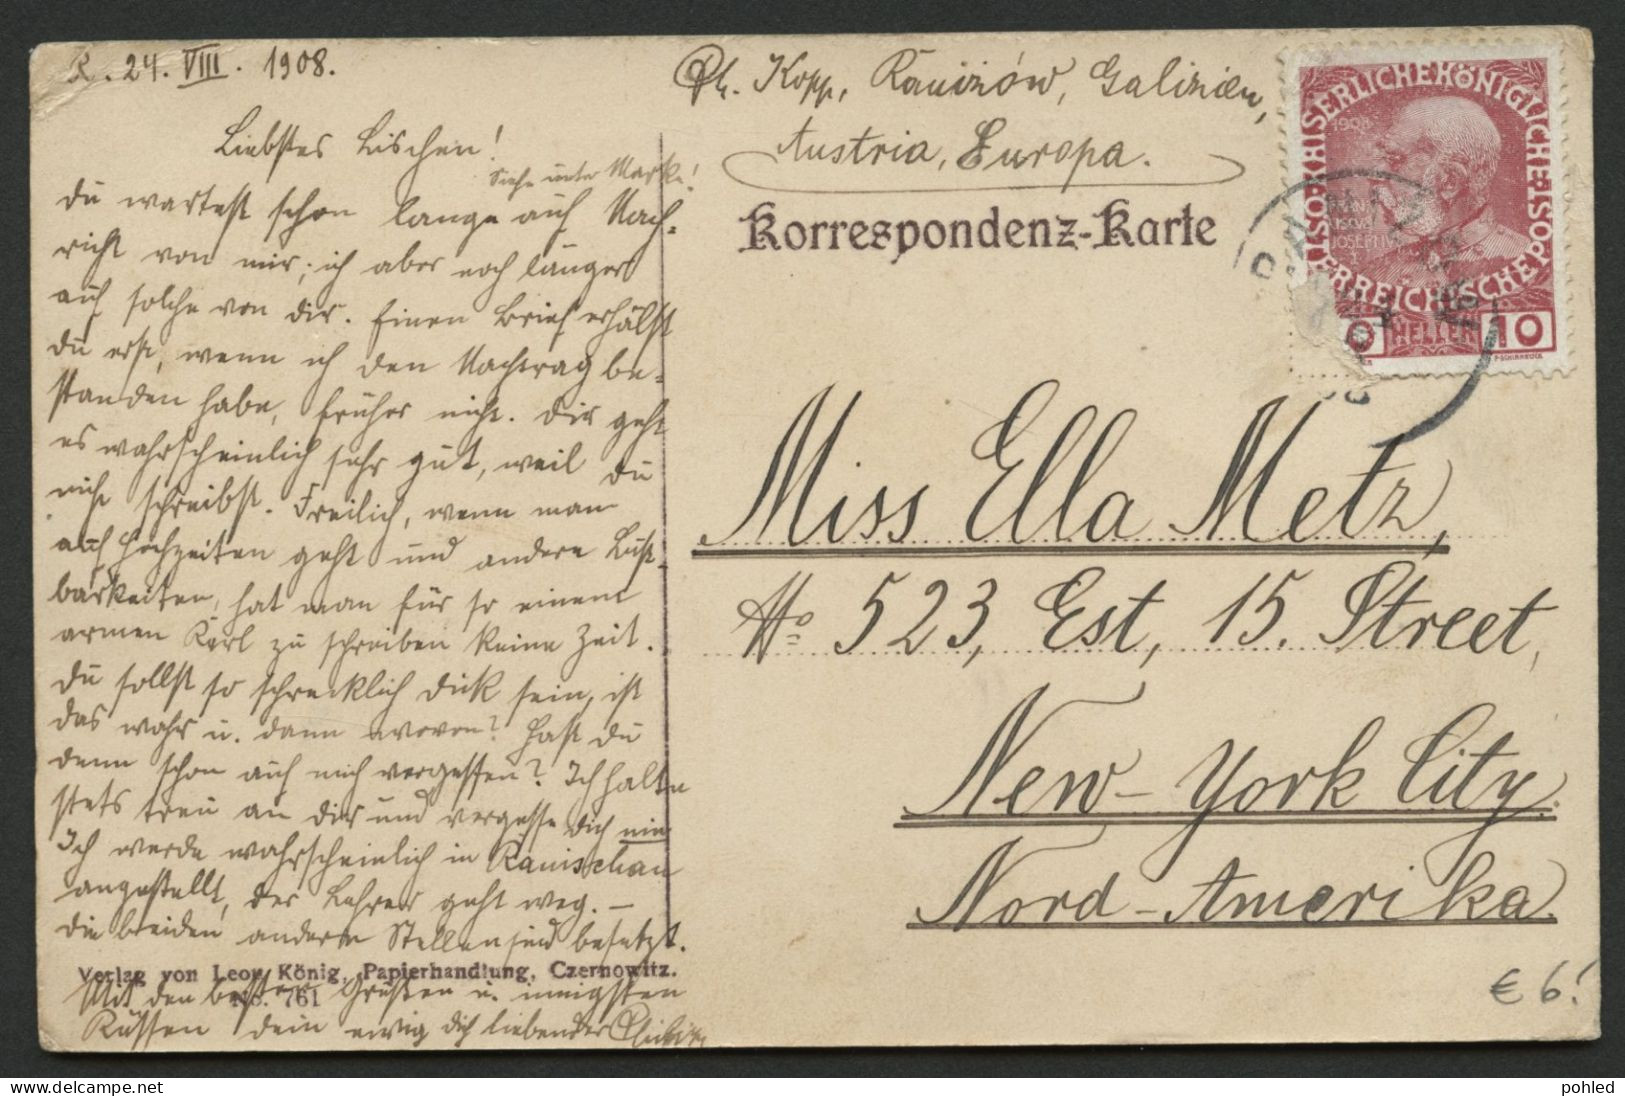 R. 24. VIII. 1908.
Liebstes Lischen!
Siehe unter Marke!
Du wartest schon lange auf Nach-
richt von mir, ich aber noch länger
auf solche von dir. Einen Brief erhälst
du erst, wenn ich den Nachtrag be-
standen habe, früher nicht. Dir geht
es wahrscheinlich sehr gut, weil du
nicht schreibst. Freilich, wenn man
auf Hochzeiten geht und andere Lust-
barkeiten, hat man für so einem
armen Kerl zu schreiben keine Zeit.
Du sollst so schrecklich dick sein, ist
das wahr u. dann wovon? Hast du
denn schon auf mich vergessen? Ich halte
stets treu an dir und vergesse dich nie.
Ich werde wahrscheinlich in Ranischau
angestellt, der Lehrer geht weg. –
Die beiden andern Stellen sind besetzt.
Mit den besten Grüßen u. innigsten
Küssen dein ewig dich liebender
Verlag von Leon König, Papierhandlung, Czernowitz.
No. 761
Ph. Kopp, Raniżów, Galizien,
Austria, Europa.
Korrespondenz-Karte
KAISERLICHE KÖNIGLICHE ÖSTERREICHISCHE POST
1908
FRANZ
JOSEF I
10 HELLER 10
Miss Ella Metz,
No 523, Est, 15. Street,
New-York City.
Nord-Amerika.
€ 6.-
pohled